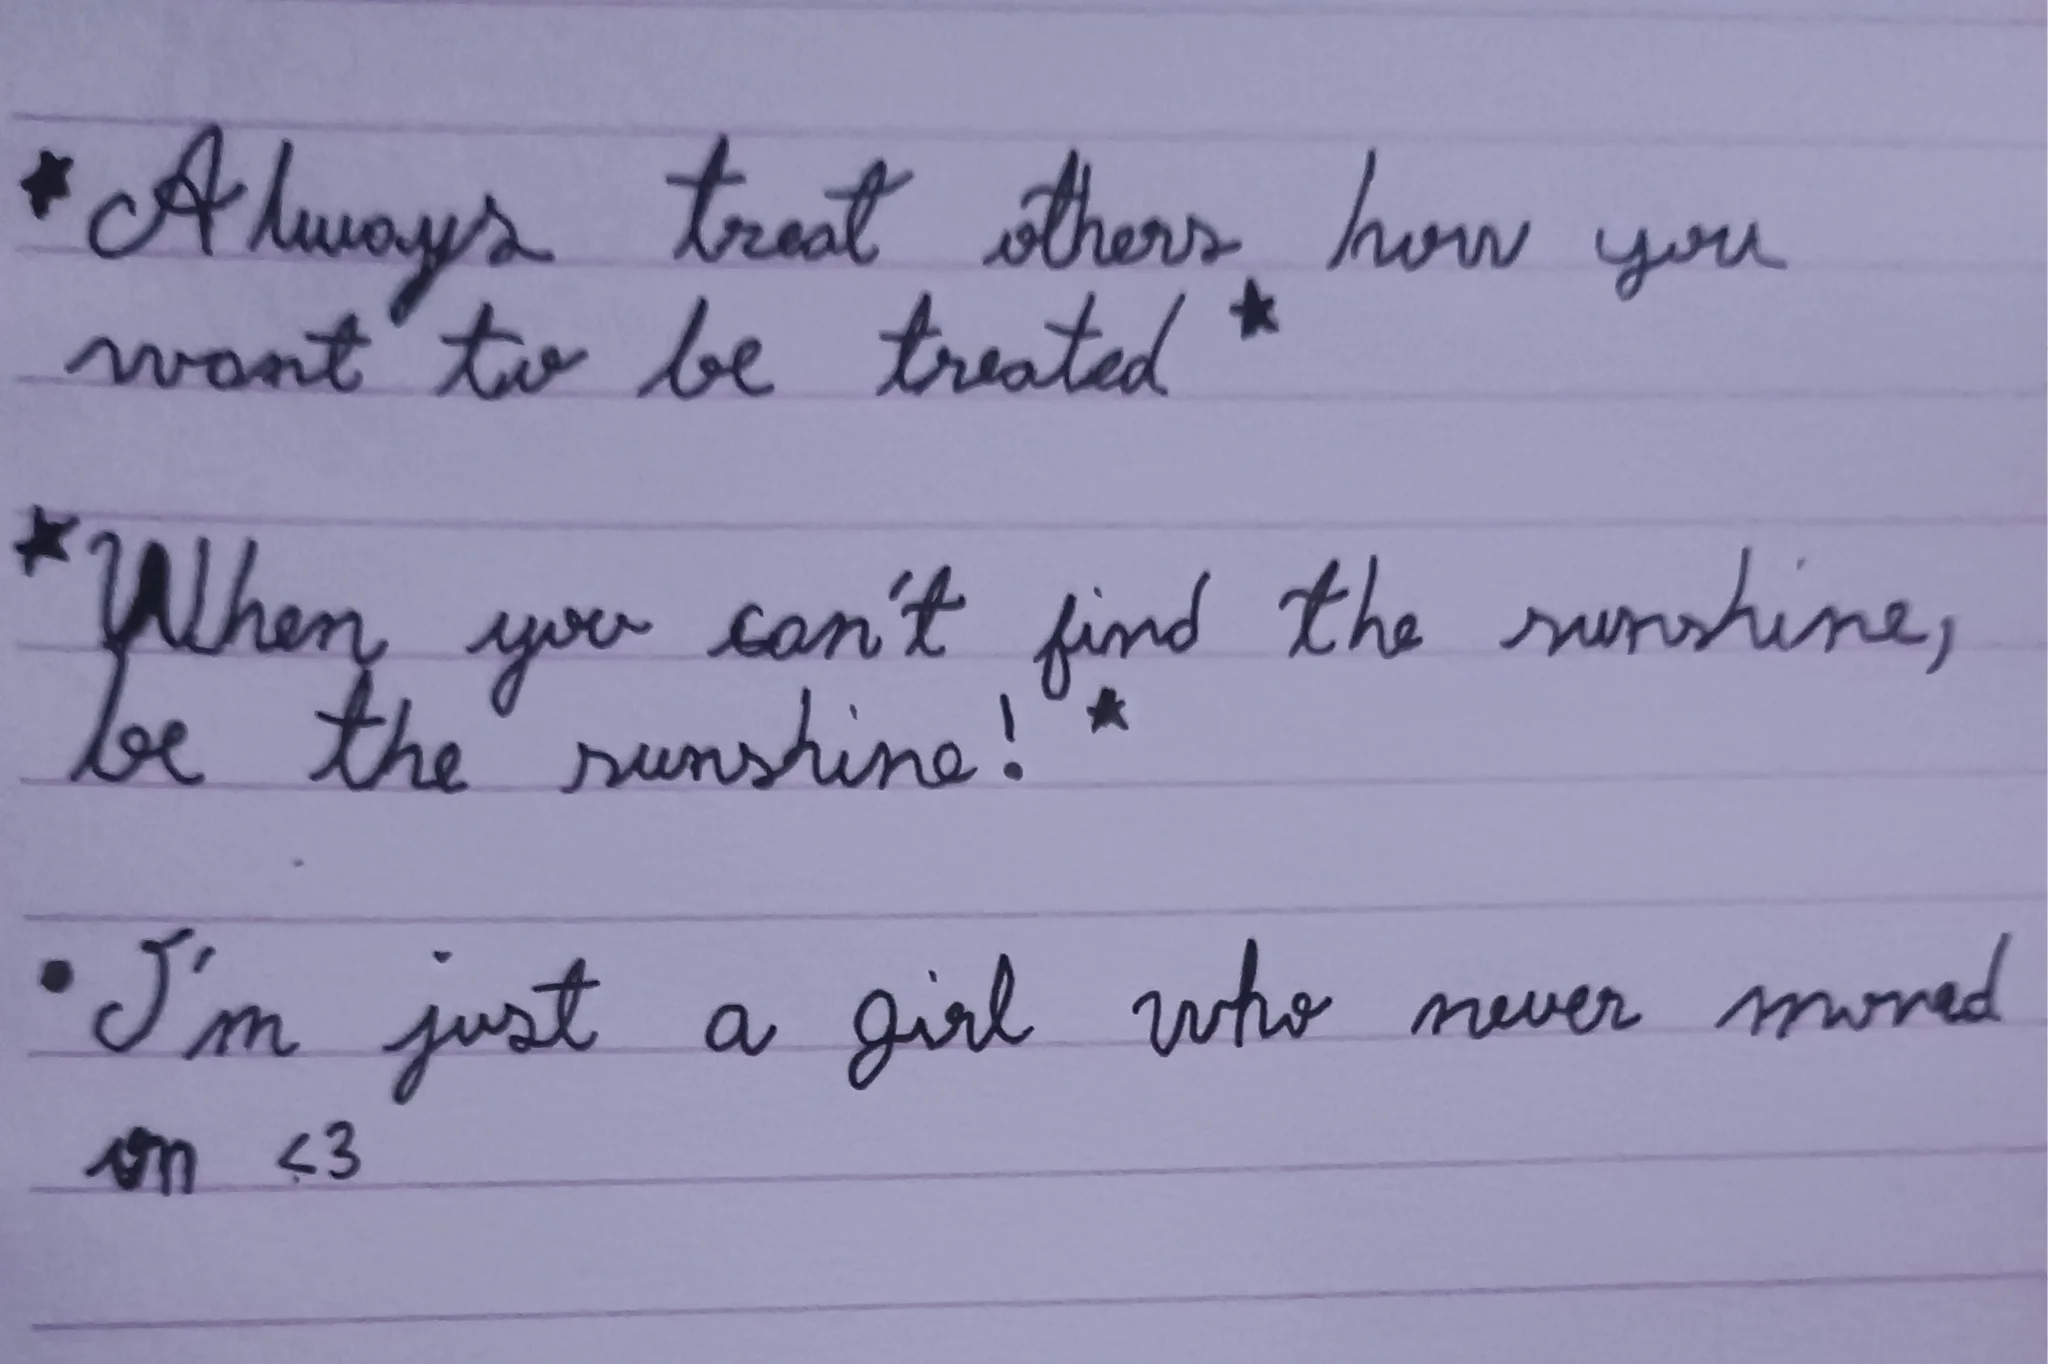 ★Always treat others how you
want to be treated★
★When you can't find the sunshine,
be the sunshine!★
•I'm just a girl who never moved
on <3